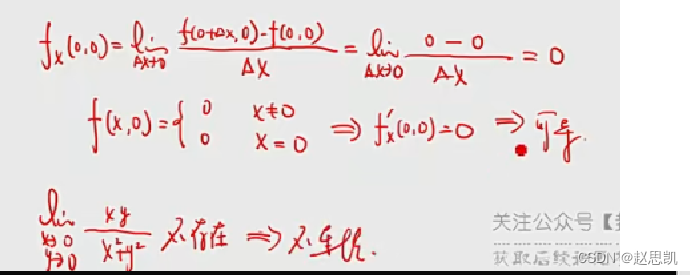 fₓ(0,0)=lim_{Δx→0} \frac{f(0+Δx,0)-f(0,0)}{Δx} = lim_{Δx→0} \frac{0-0}{Δx} = 0
f(x,0)={ 0 x≠0 ⇒ f'ₓ(0,0)=0 ⇒ 可导.
0 x=0
lim_{x→0 y→0} \frac{xy}{x²+y²} 不存在 ⇒ 不连续.
关注公众号【
获取后续
CSDN @赵思凯